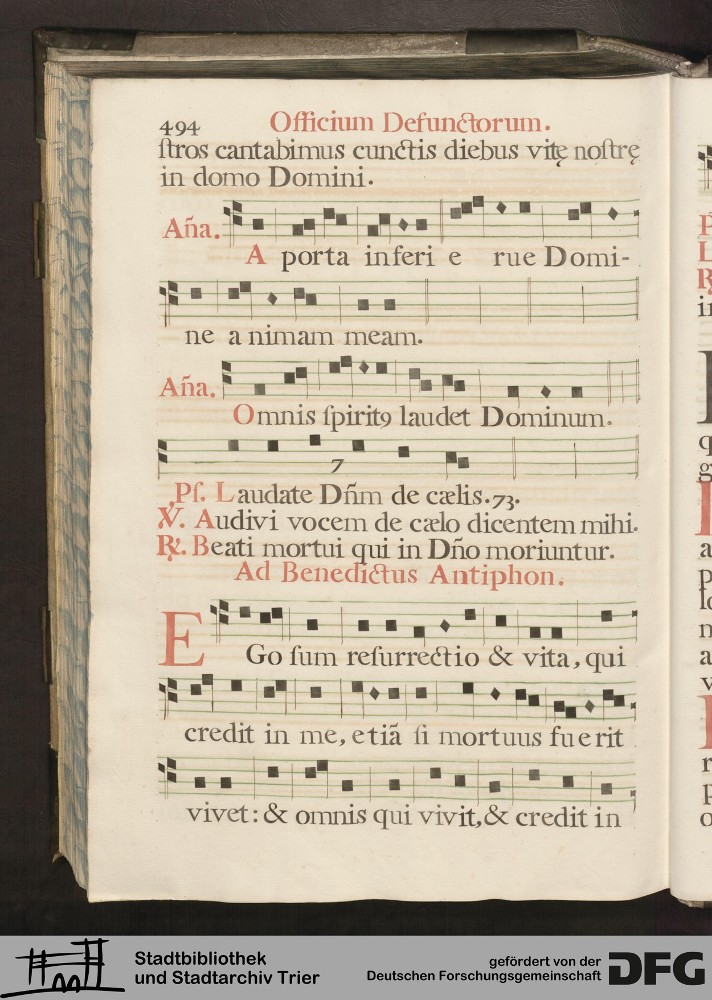 494 Officium Defunctorum.
ſtros cantabimus cunctis diebus vitę noſtrę
in domo Domini.
Aña.
A porta inferi e rue Domi-
ne animam meam.
Aña.
Omnis ſpiritꝰ laudet Dominum.
7
Pſ. Laudate Dñm de cælis. 73.
℣. Audivi vocem de cælo dicentem mihi.
℟. Beati mortui qui in Dño moriuntur.
Ad Benedictus Antiphon.
EGo ſum reſurrectio & vita, qui
credit in me, etiã ſi mortuus fuerit
vivet: & omnis qui vivit, & credit in
Stadtbibliothek
und Stadtarchiv Trier
gefördert von der
Deutschen Forschungsgemeinschaft
DFG